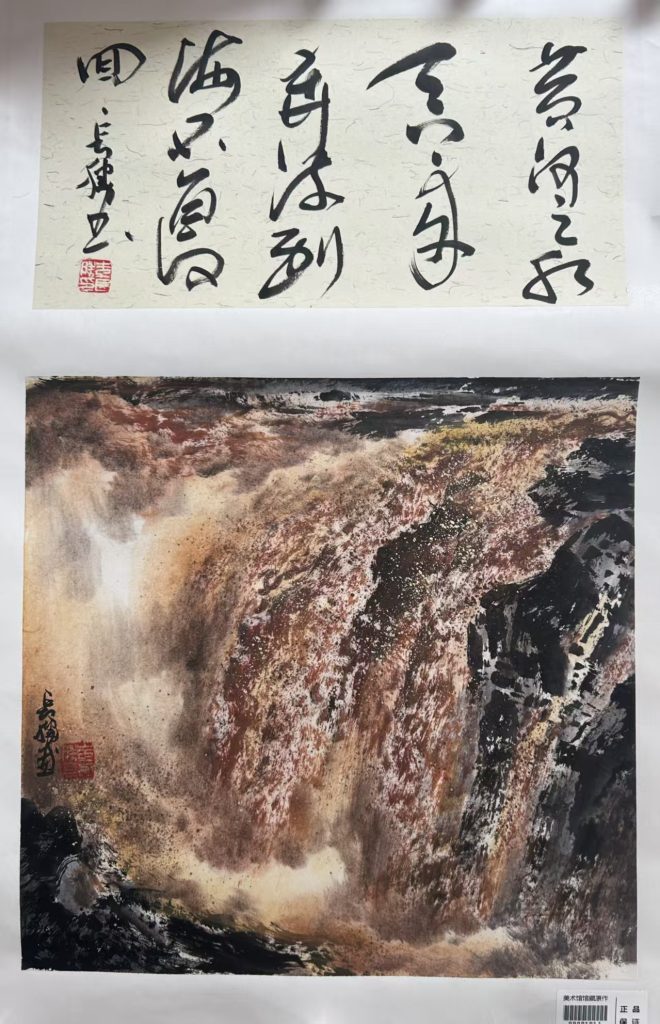 黄河之水
天上来
奔流到
海不复
回 长胜书
长胜画
美术馆馆藏原作
正品
保证